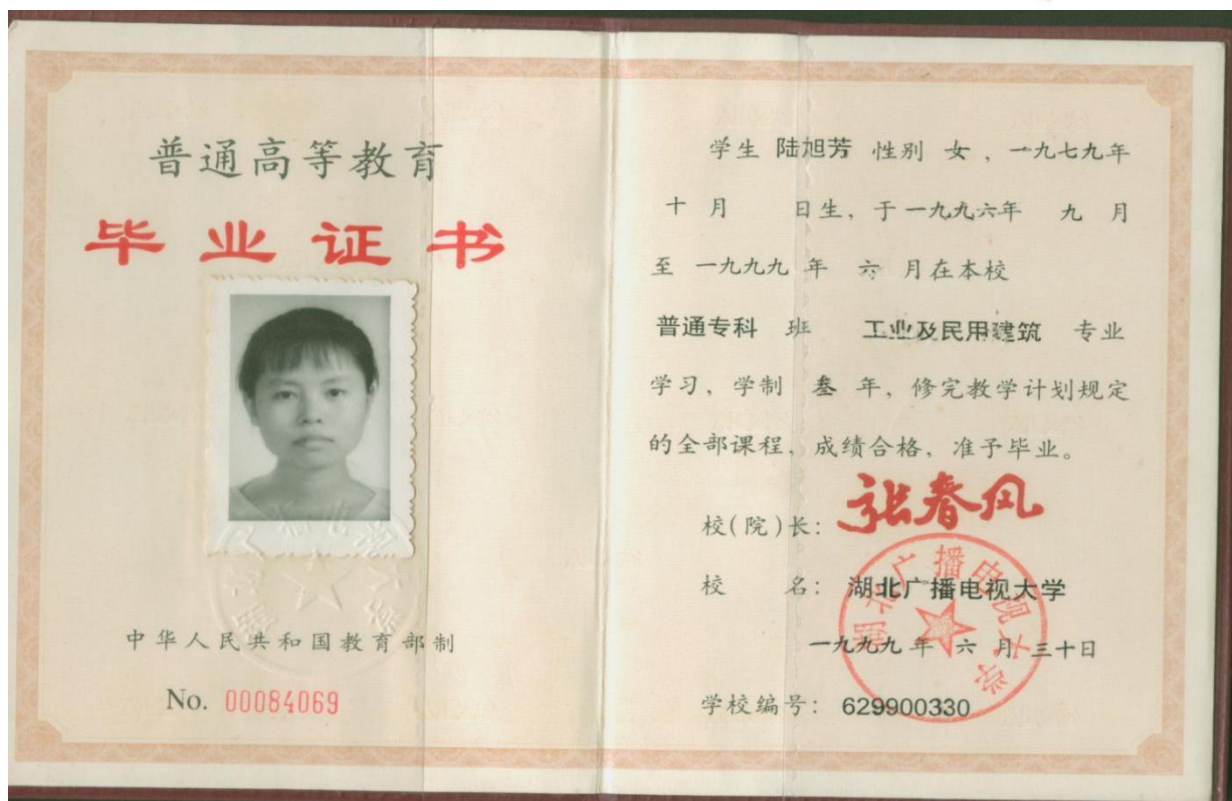 普通高等教育
毕业证书
中华人民共和国教育部制
No. 00084069
学生 陆旭芳 性别 女，一九七九年
十 月 日生，于一九九六年 九 月
至 一九九九 年 六 月在本校
普通专科 班 工业及民用建筑 专业
学习，学制 叁 年，修完教学计划规定
的全部课程，成绩合格，准予毕业。
校(院)长：张春风
校 名：湖北广播电视大学
一九九九年 六 月 三十日
学校编号：629900330
湖北广播电视大学